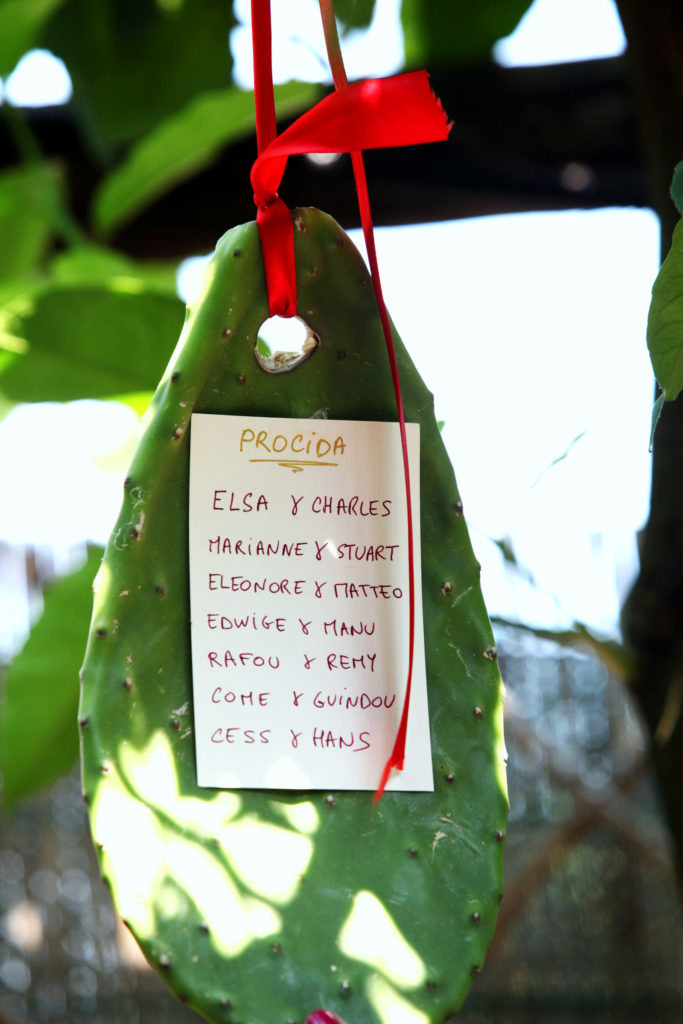 PROCiDA
ELSA & CHARLES
MARiANNE & STUART
ELEONORE & MATTEO
EDWIGE & MANU
RAFOU & REMY
COME & GUiNDOU
CESS & HANS